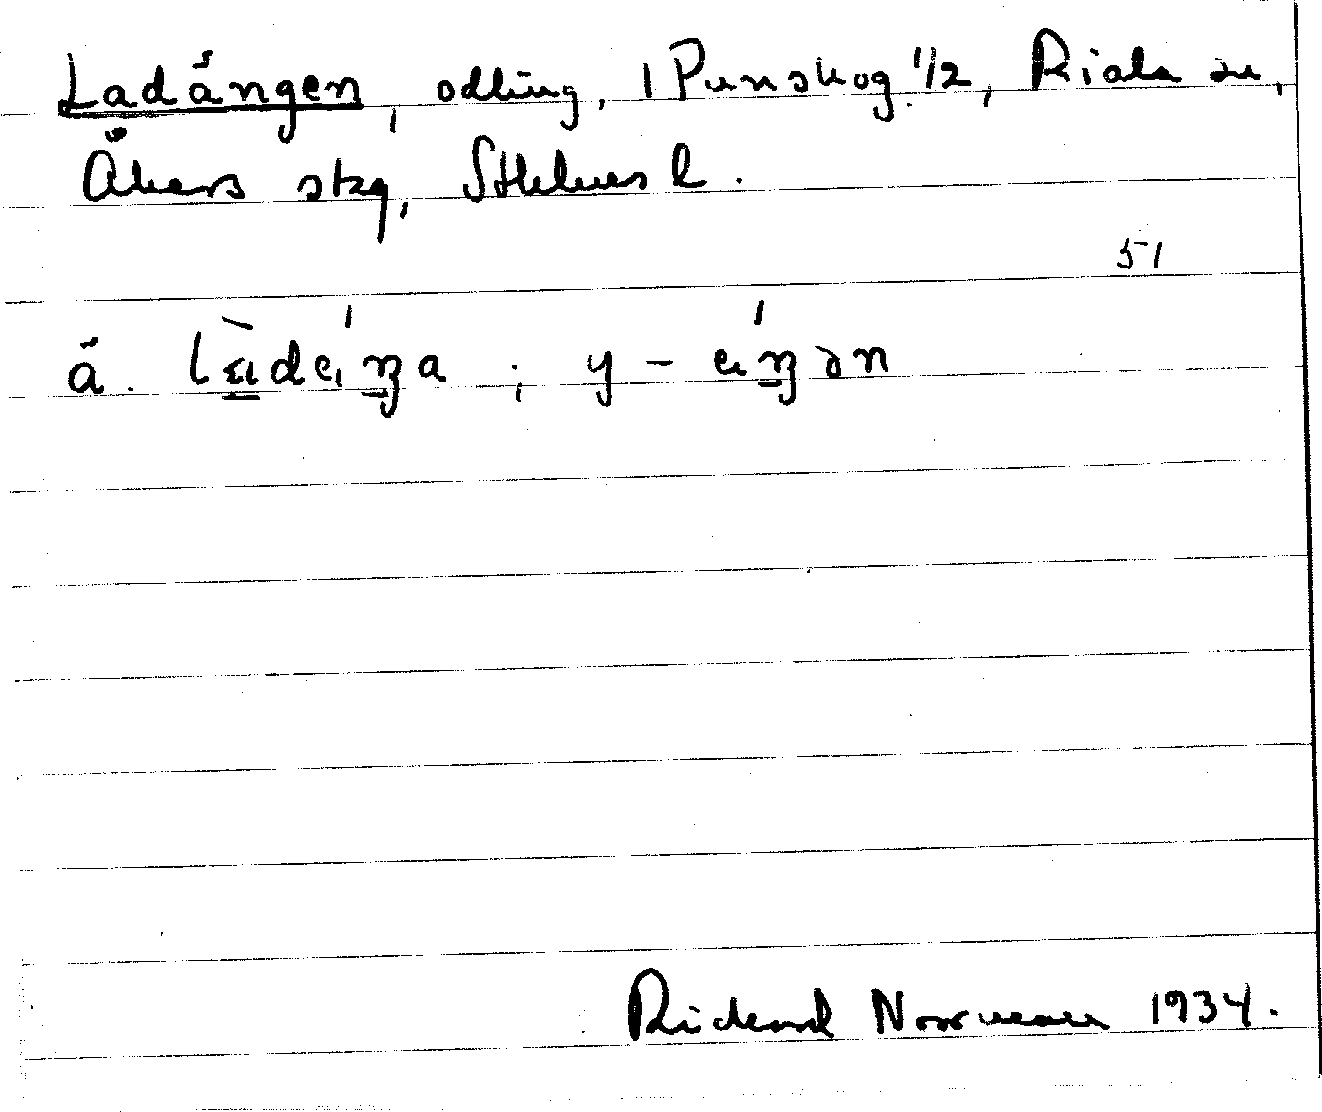 Ladängen, odling, 1 Punskog 1/2, Riala sn,
Åkers skg, Sthlms l.
51
ä.
Rickard Norrman 1934.